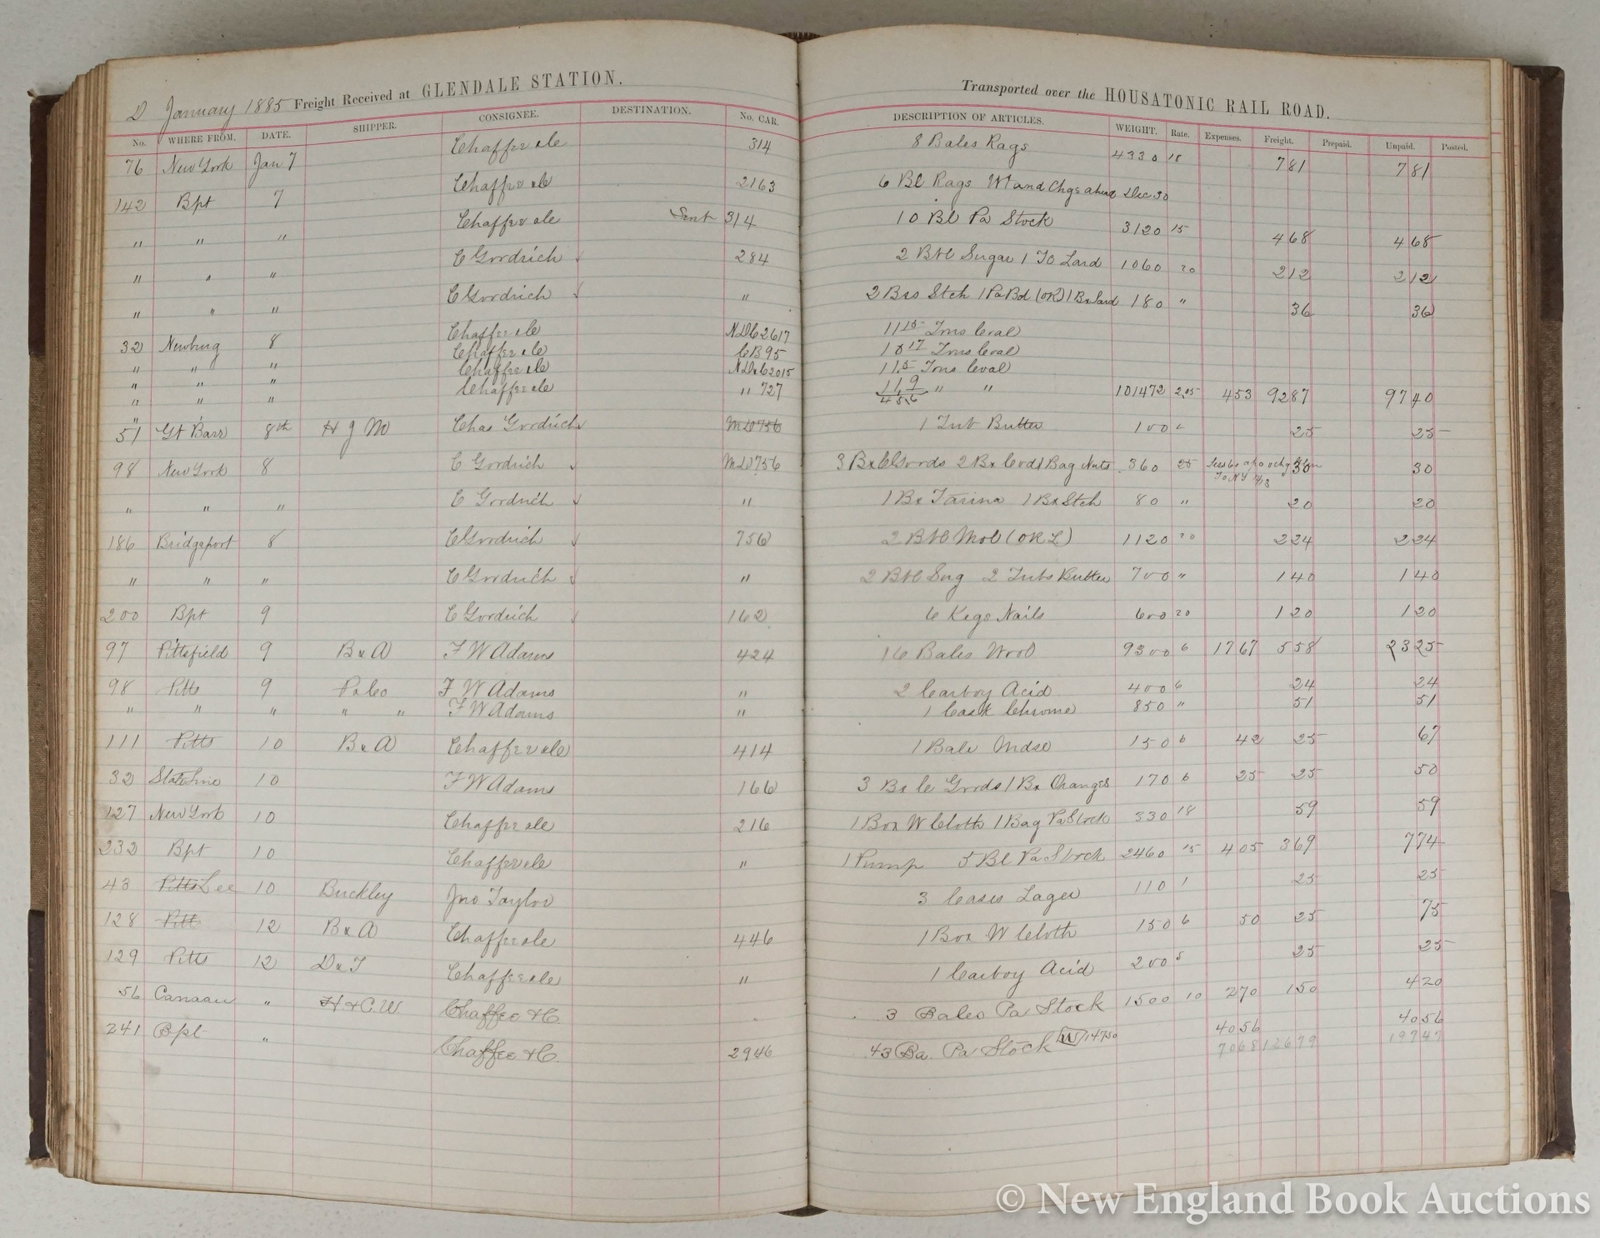 D January 1885 Freight Received at GLENDALE STATION. Transported over the HOUSATONIC RAIL ROAD.
No. WHERE FROM. DATE. SHIPPER. CONSIGNEE. DESTINATION. No. CAR. DESCRIPTION OF ARTICLES. WEIGHT. Rate. Expenses. Freight. Prepaid. Unpaid. Posted.
76 New York Jan 7 Chaffee &Co 314 8 Bales Rags 4330 18 781 781
142 Bpt 7 Chaffee &Co 2163 6 Bl Rags Wt and Chgs ahead Dec 30
" " " Chaffee &Co Sent 314 10 Bl Pa Stock 3120 15 468 468
" " " C Goodrich 284 2 Bbl Sugar 1 To Lard 1060 20 212 212
" " " C Goodrich " 2 Bxs Stch 1 Pa Bol (OR) 1 Bx Sard 180 " 36 36
32 Newburg 8 Chaffee &Co 2617 11 15 Tons Coal
" " " Chaffee &Co CB 95 10 17 Tons Coal
" " " Chaffee &Co 2015 11 15 Tons Coal
" " " Chaffee &Co " 727 11 9 " " 101472 2.05 453 9287 9740
51 Gt Barr 8th H J M Chas Goodrich 756 1 Tub Butter 100 6 25 25
98 New York 8 C Goodrich 756 3 Bx C Goods 2 Bx Cod 1 Bag Nuts 360 25 30 30
" " " C Goodrich " 1 Bx Farina 1 Bx Stch 80 " 20 20
186 Bridgeport 8 C Goodrich 756 2 Bbl Mol (OR L) 1120 20 224 224
" " " C Goodrich " 2 Bbl Sug 2 Tubs Butter 700 " 140 140
200 Bpt 9 C Goodrich 162 6 Kegs Nails 600 20 120 120
97 Pittsfield 9 B & A F W Adams 424 16 Bales Wool 9300 6 1767 558 2325
98 Pitts 9 Pa Co F W Adams " 2 Carboy Acid 400 6 24 24
" " " " " F W Adams " 1 Cask Chrome 850 " 51 51
111 Pitts 10 B & A Chaffee &Co 414 1 Bale Mdse 150 6 42 25 67
32 State Line 10 F W Adams 166 3 Bx C Goods 1 Bx Oranges 170 6 25 25 50
127 New York 10 Chaffee &Co 216 1 Box W Cloth 1 Bag Pa Stock 330 18 59 59
232 Bpt 10 Chaffee &Co " 1 Pump 5 Bl Pa Stock 2460 15 405 369 774
43 Pitts Lee 10 Buckley Jno Taylor 3 Cases Lager 110 1 25 25
128 Pitt 12 B & A Chaffee &Co 446 1 Box W Cloth 150 6 50 25 75
129 Pitts 12 D & T Chaffee &Co " 1 Carboy Acid 200 5 25 25
56 Canaan " H & C. W. Chaffee & C. 3 Bales Pa Stock 1500 10 270 150 420
241 Bpt " Chaffee & C. 2946 43 Ba. Pa Stock W 14750 4056 4056
7068 12679 19747
© New England Book Auctions